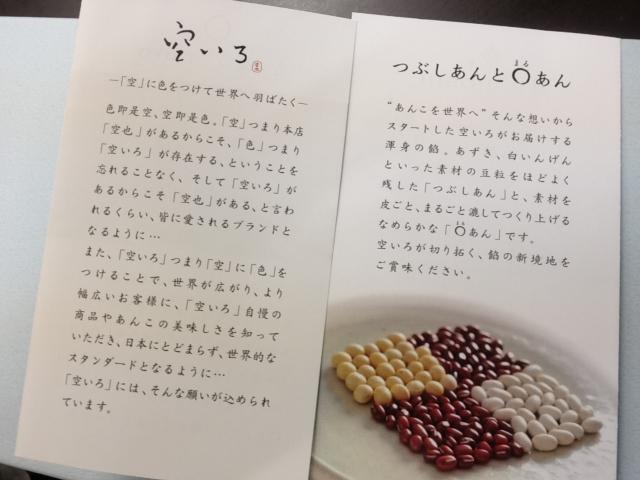 空いろ
―「空」に色をつけて世界へ羽ばたく―
色即是空、空即是色。「空」つまり本店
「空也」があるからこそ、「色」つまり
「空いろ」が存在する、ということを
忘れることなく、そして「空いろ」が
あるからこそ「空也」がある、と言わ
れるくらい、皆に愛されるブランドと
なるように…
また、「空いろ」つまり「空」に「色」を
つけることで、世界が広がり、より
幅広いお客様に、「空いろ」自慢の
商品やあんこの美味しさを知って
いただき、日本にとどまらず、世界的な
スタンダードとなるように…
「空いろ」には、そんな願いが込められ
ています。
つぶしあんと〇あん
まる
“あんこを世界へ”そんな想いから
スタートした空いろがお届けする
渾身の餡。あずき、白いんげん
といった素材の豆粒をほどよく
残した「つぶしあん」と、素材を
皮ごと、まるごと漉してつくり上げる
なめらかな「〇あん」です。
まる
空いろが切り拓く、餡の新境地を
ご賞味ください。